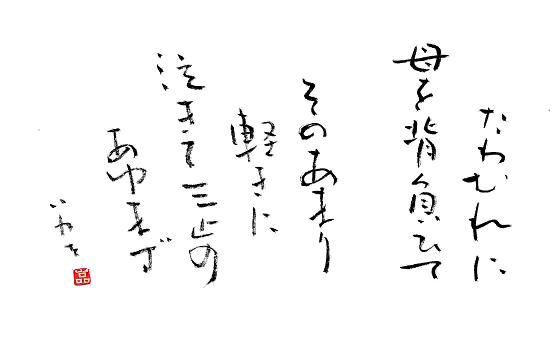 たわむれに
母を背負ひて
そのあまり
軽きに
泣きて三歩
あゆまず